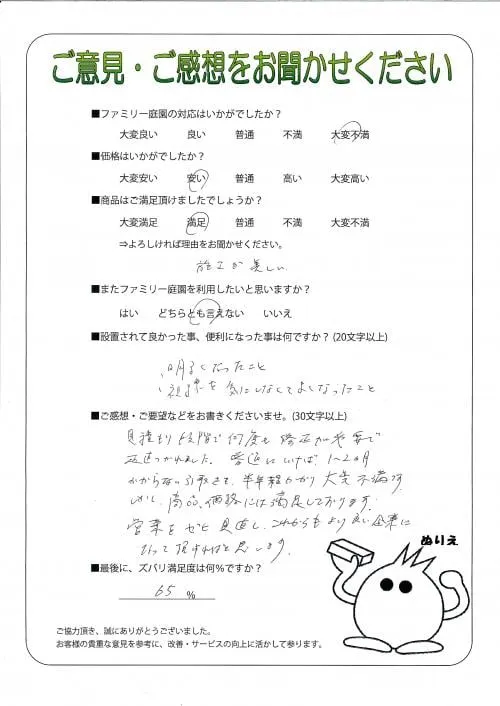 ご意見・ご感想をお聞かせください
■ファミリー庭園の対応はいかがでしたか？
大変良い 良い 普通 不満 大変不満
■価格はいかがでしたか？
大変安い 安い 普通 高い 大変高い
■商品はご満足頂けましたでしょうか？
大変満足 満足 普通 不満 大変不満
⇒よろしければ理由をお聞かせください。
施工が美しい
■またファミリー庭園を利用したいと思いますか？
はい どちらとも言えない いいえ
■設置されて良かった事、便利になった事は何ですか？(20文字以上)
、明るくなったこと
、視線を気にしなくてよくなったこと
■ご感想・ご要望などをお書きくださいませ。(30文字以上)
見積もり段階で何度も修正が必要で
普通にいけば 1〜2ヶ月
かからない 半年程かかり 大変不満です
しかし、商品、価格には満足しております。
営業をぜひ見直し、これからもより良い企業に
なって頂ければと思います。
ぬりえ
■最後に、ズバリ満足度は何％ですか？
65 ％
ご協力頂き、誠にありがとうございました。
お客様の貴重な意見を参考に、改善・サービスの向上に活かして参ります。